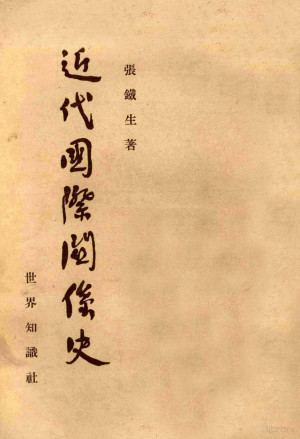 張鐵生著
近代國際關係史
世界知識社